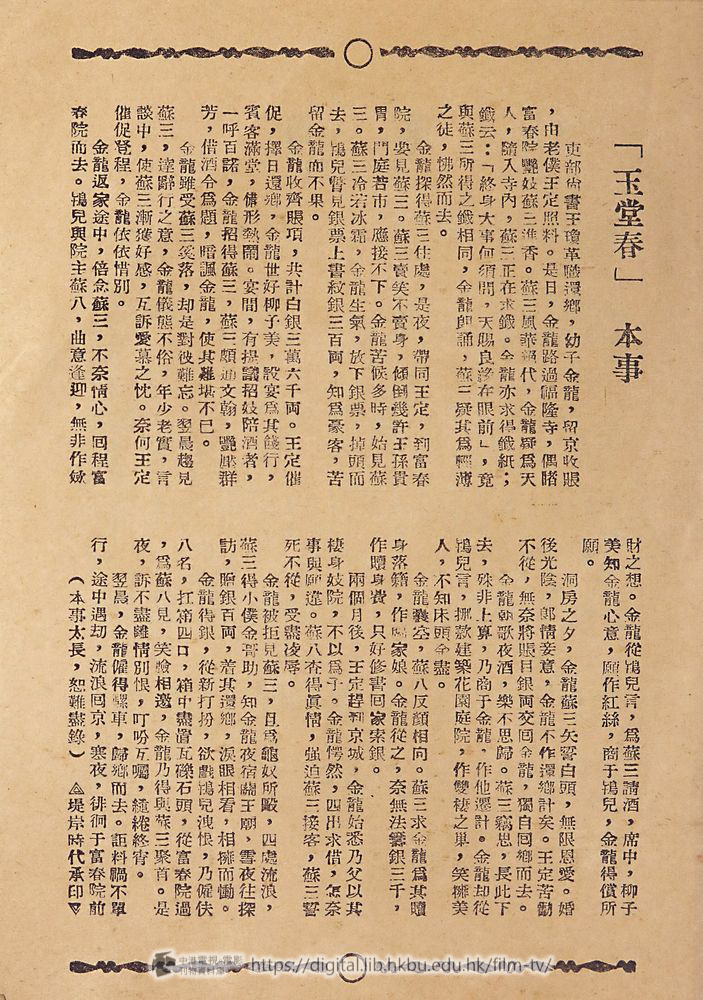 「玉堂春」 本事
吏部尚書王瓊革職還鄉,幼子金龍,留京收賬
,由老僕王定照料。是日,金龍路過福隆寺,偶睹
富春院艷妓蘇三進香。蘇三風華絕代,金龍疑爲天
人,隨入寺內,蘇三正在求籤。金龍亦求得籤紙;
籤云:「終身大事何須問,天賜良緣在眼前」,竟
與蘇三所得之籤相同,金龍朗誦,蘇三疑其爲輕薄
之徒,怫然而去。
金龍探得蘇三住處,是夜,帶同王定,到富春
院,要見蘇三。蘇三賣笑不賣身,傾倒幾許王孫貴
胄,門庭若市,應接不下。金龍苦候多時,始見蘇
三。蘇三冷若冰霜,金龍生氣,放下銀票,掉頭而
去,鴇兒瞥見銀票上書紋銀三百両,知爲豪客,苦
留金龍而不果。
金龍收齊賬項,共計白銀三萬六千両。王定催
促,擇日還鄉,金龍世好柳子美,設宴爲其餞行,
賓客滿堂,備形熱鬧。宴間,有提議招妓陪酒者,
一呼百諾,金龍招得蘇三,蘇三頗通文翰,艷壓群
芳,借酒令爲題,暗諷金龍,使其難堪不已。
金龍雖受蘇三奚落,却是對彼難忘。翌晨趨見
蘇三,達辭行之意,金龍儀態不俗,年少老實,言
談中,使蘇三漸獲好感,互訴愛慕之忱。奈何王定
催促登程,金龍依依惜別。
金龍返家途中,倍念蘇三,不奈情心,回程富
春院而去。鴇兒與院主蘇八,曲意逢迎,無非作歛
財之想。金龍從鴇兒言,爲蘇三請酒,席中,柳子
美知金龍心意,願作紅絲,商于鴇兒,金龍得償所
願。
洞房之夕,金龍蘇三矢誓白頭,無限恩愛。婚
後光陰,郎情妾意,金龍不作還鄉計矣。王定苦勸
不從,無奈將賬目銀両交回金龍,獨自回鄉而去。
金龍朝歌夜酒,樂不思歸。蘇三竊思,長此下
去,殊非上算,乃商于金龍,作他遷計。金龍却從
鴇兒言,挪款建築花園庭院,作雙棲之巢,笑擁美
人,不知床頭金盡。
金龍囊空,蘇八反顏相向。蘇三求金龍爲其贖
身落籍,作歸家娘。金龍從之,奈無法籌銀三千,
作贖身費,只好修書回家索銀。
両個月後,王定趕到京城,金龍始悉乃父以其
棲身妓院,不以爲子。金龍愕然,四出求借,怎奈
事與願違。蘇八查得眞情,強迫蘇三接客,蘇三誓
死不從,受盡凌辱。
金龍被拒見蘇三,且爲龜奴所毆,四處流浪,
蘇三得小僕金哥助,知金龍夜宿關王廟,雪夜往探
訪,贈銀百両,着其還鄉,淚眼相看,相擁而慟。
金龍得銀,從新打扮,欲戲鴇兒洩恨,乃僱伕
八名,扛箱四口,箱中盡置瓦礫石頭,從富春院過
,爲蘇八見,笑臉相邀,金龍乃得與蘇三聚首。是
夜,訴不盡離情別恨,叮吩互囑,繾綣終宵。
翌晨,金龍僱得騾車,歸鄉而去。詎料禍不單
行,途中遇劫,流浪回京,寒夜,徘徊于富春院前
(本事太長,恕難盡錄) △堤岸時代承印▽
中港電視·電影
刊物資料庫
https://digital.lib.hkbu.edu.hk/film-tv/